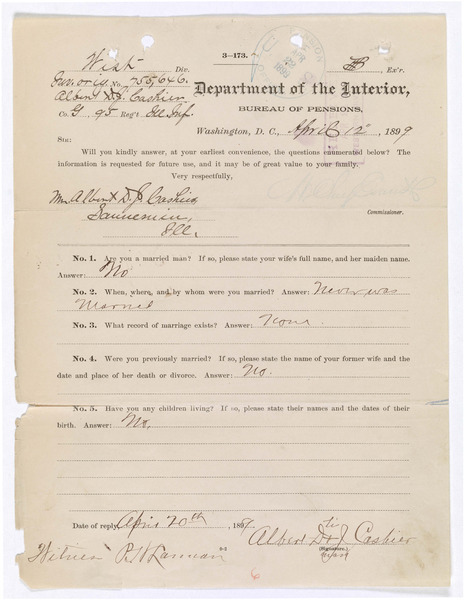 West Div.
3—173.
Ex'r.
Inv. orig. No. 755,646.
Albert D. J. Cashier
Co. G 95 Reg't Ill. Inf.
Department of the Interior,
BUREAU OF PENSIONS,
Washington, D. C., April 12, 1899
SIR:
Will you kindly answer, at your earliest convenience, the questions enumerated below? The
information is requested for future use, and it may be of great value to your family.
Very respectfully,
Mr. Albert D. J. Cashier
Saunemin,
Ill.
Commissioner.
No. 1. Are you a married man? If so, please state your wife's full name, and her maiden name.
Answer: No
No. 2. When, where, and by whom were you married? Answer: Never was
Married
No. 3. What record of marriage exists? Answer: None.
No. 4. Were you previously married? If so, please state the name of your former wife and the
date and place of her death or divorce. Answer: No.
No. 5. Have you any children living? If so, please state their names and the dates of their
birth. Answer: No.
Date of reply, April 20th, 189
his
Albert D. J. Cashier
(Signature.)
mark
Witness